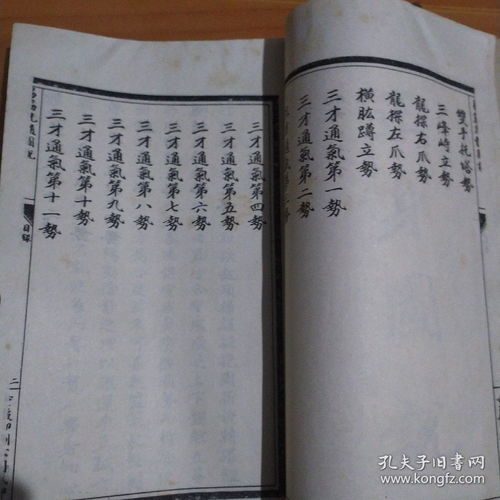 雙手托塔勢
三峰峙立勢
龍探右爪勢
龍探左爪勢
橫肱蹲立勢
三才通氣第一勢
三才通氣第二勢
三才通氣第四勢
三才通氣第五勢
三才通氣第六勢
三才通氣第七勢
三才通氣第八勢
三才通氣第九勢
三才通氣第十勢
三才通氣第十一勢
目錄
二
孔夫子旧书网
kongfz.com